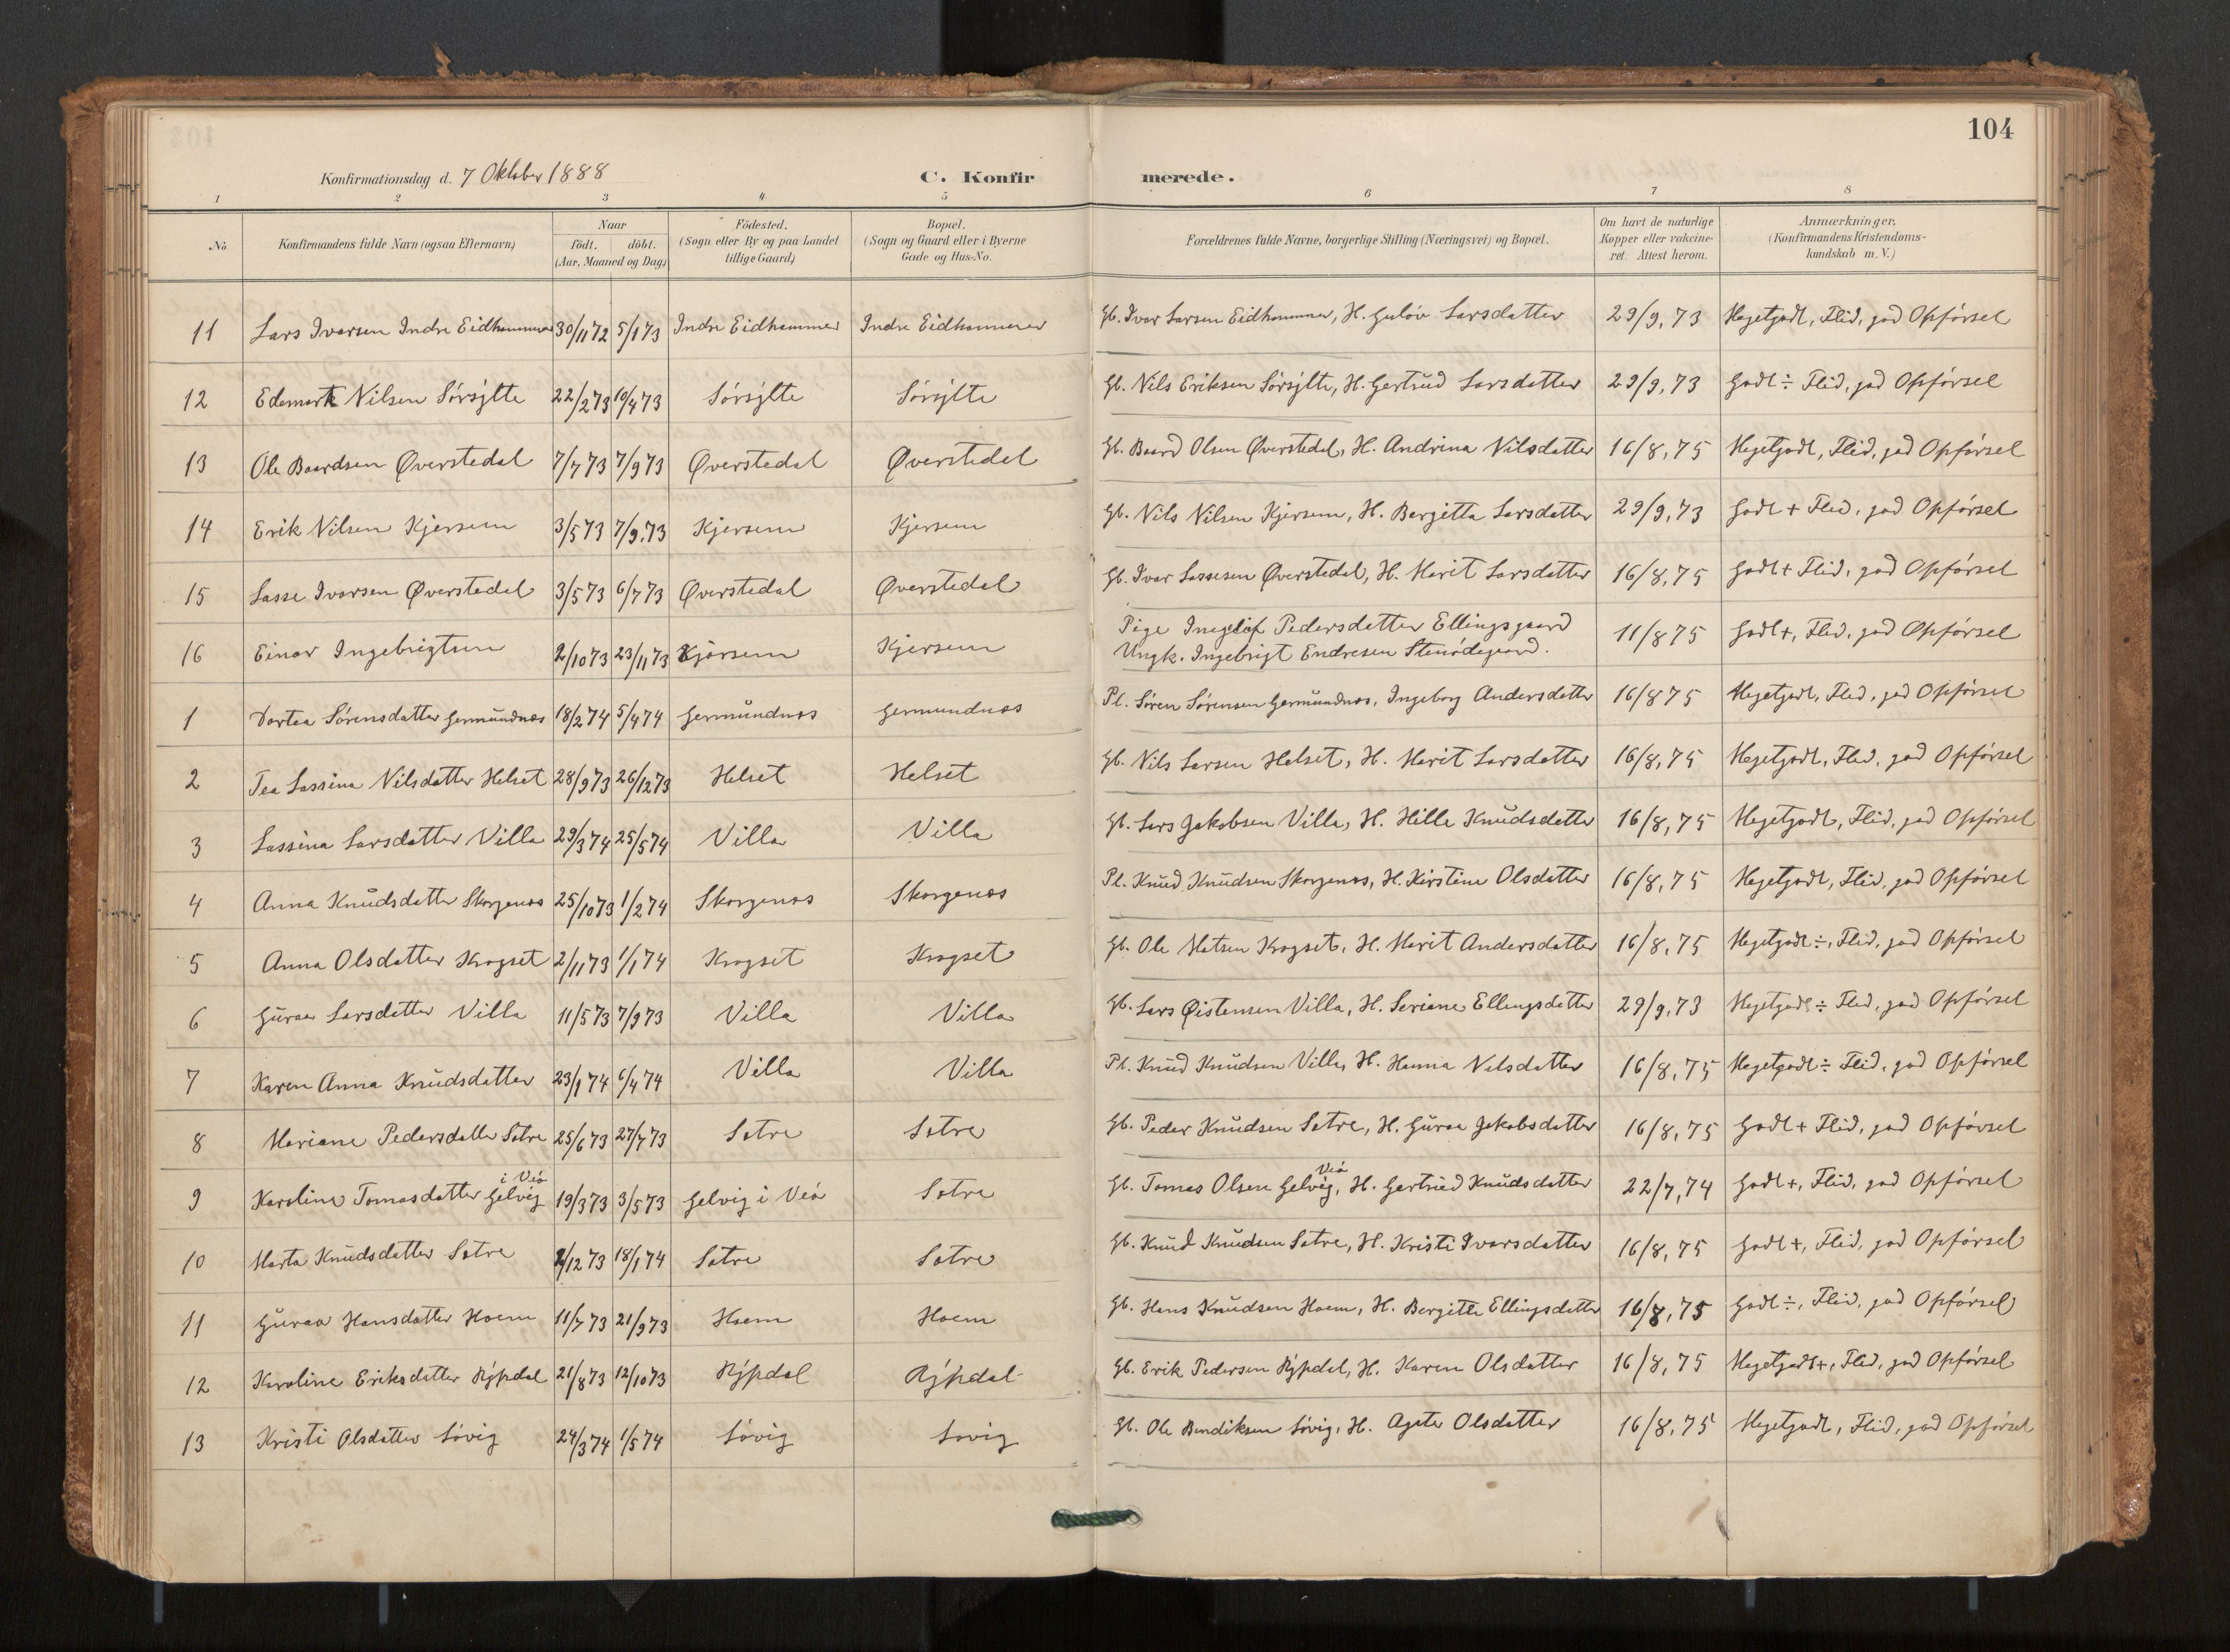 104
Konfirmationsdag d. 7 Oktober 1888 C. Konfirmerede.
1 2 3 4 5 6 7 8
No | Konfirmandens fulde Navn (ogsaa Efternavn) | Naar födt. döbt. (Aar, Maaned og Dag) | Födested. (Sogn eller By og paa Landet tillige Gaard) | Bopæl. (Sogn og Gaard eller i Byerne Gade og Hus-No. | Forældrenes fulde Navne, borgerlige Stilling (Næringsvei) og Bopæl. | Om havt de naturlige Kopper eller vakcineret. Attest herom. | Anmærkninger. (Konfirmandens Kristendomskundskab m. V.)
11 Lars Ivarsen Indre Eidhammer 30/11 72 5/1 73 Indre Eidhammer Indre Eidhammer Gb. Ivar Larsen Eidhammer, H. Guløv Larsdatter 29/9, 73 Megetgodt, Flid, god Opförsel
12 Edemark Nilsen Sörsylte 22/2 73 10/4 73 Sörsylte Sörsylte Gb. Nils Eriksen Sörsylte, H. Gertrud Larsdatter 29/9, 73 Godt ÷ Flid, god Opförsel
13 Ole Baardsen Øverstedal 7/7 73 7/9 73 Øverstedal Øverstedal Gb. Baard Olsen Øverstedal, H. Andrina Nilsdatter 16/8, 75 Megetgodt, Flid, god Opförsel
14 Erik Nilsen Kjersem 3/5 73 7/9. 73 Kjersem Kjersem Gb. Nils Nilsen Kjersem, H. Bergitta Larsdatter 29/9, 73 Godt + Flid, god Opförsel
15 Lasse Ivarsen Øverstedal 3/5 73 6/7 73 Øverstedal Øverstedal Gb. Ivar Lassesen Øverstedal, H. Marit Larsdatter 16/8, 75 Godt + Flid, god Opförsel
16 Einar Ingebrigtsen 2/10 73 23/11 73 Kjörsem Kjersem Pige Ingeløf Pedersdatter Ellingsgaard 11/8 75 Godt +, Flid, god Opförsel
Ungk. Ingebrigt Endresen Stenödegaard.
1 Dortea Sörensdatter Germŭndnæs 18/2 74 5/4 74 Germŭndnæs Germundnæs Pl. Søren Sørensen Germundnæs, Ingeborg Andersdatter 16/8 75 Megetgodt, Flid, god Opförsel
2 Tea Lassina Nilsdatter Helset 28/9 73 26/12 73 Helset Helset Gb. Nils Larsen Helset, H. Marit Larsdatter 16/8, 75 Megetgodt, Flid, god Opförsel
3 Lassina Larsdatter Villa 29/3 74 25/5 74 Villa Villa Gb. Lars Jakobsen Villa, H. Hille Knŭdsdatter 16/8, 75 Megetgodt, Flid, god Opförsel
4 Anna Knŭdsdatter Skorgenæs 25/10 73 1/2 74 Skorgenæs Skorgenæs Pl. Knŭd Knŭdsen Skorgenæs, H. Kirstine Olsdatter 16/8, 75 Megetgodt, Flid, god Opförsel
5 Anna Olsdatter Krogset 2/11 73 1/1 74 Krogset Krogset Gb. Ole Matsen Krogset, H. Marit Andersdatter 16/8, 75 Megetgodt ÷, Flid, god Opförsel
6 Gŭroa Larsdatter Villa 11/5 73 7/9 73 Villa Villa Gb. Lars Øistensen Villa, H. Seriane Ellingsdatter 29/9, 73 Megetgodt ÷ Flid, god Opförsel
7 Karen Anna Knŭdsdatter 23/1 74 6/4 74 Villa Villa Pl. Knŭd Knŭdsen Villa, H. Hanna Nilsdatter 16/8, 75 Megetgodt ÷ Flid, god Opförsel
8 Mariane Pedersdatter Sotre 25/6 73 27/7 73 Sotre Sotre Gb. Peder Knŭdsen Sotre, H. Gŭroa Jakobsdatter 16/8, 75 Godt + Flid, god Opförsel
9 Karoline Tomasdatter Gelvig i Veö 19/3 73 3/5 73 Gelvig i Veö Sotre Gb. Tomas Olsen Gelvig, Veö H. Gertrŭd Knŭdsdatter 22/7, 74 Godt +, Flid, god Opförsel
10 Marta Knŭdsdatter Sotre /12 73 18/1 74 Sotre Sotre Gb. Knŭd Knŭdsen Sotre, H. Kristi Ivarsdatter 16/8, 75 Godt +, Flid, god Opförsel
11 Gŭroa Hansdatter Hoem 11/7 73 21/9 73 Hoem Hoem Gb. Hans Knŭdsen Hoem, H. Bergitte Ellingsdatter 16/8, 75 Godt ÷, Flid, god Opförsel
12 Karoline Eriksdatter Rypdal 21/8 73 12/10 73 Rypdal Rypdal Gb. Erik Pedersen Rypdal, H. Karen Olsdatter 16/8, 75 Megetgodt +, Flid, god Opförsel
13 Kristi Olsdatter Sövig 24/3 74 1/5 74 Sövig Sovig Gb. Ole Bendiksen Sövig, H. Agate Olsdatter 16/8, 75 Megetgodt, Flid, god Opförsel